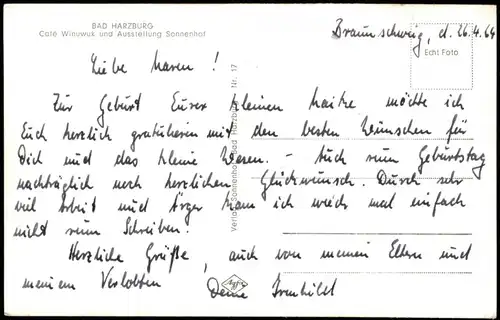 BAD HARZBURG
Café Winuwuk und Ausstellung Sonnenhof
Braunschweig, d. 26.4.64
Echt Foto
Liebe Maren !
Zur Geburt Eurer kleinen Maike möchte ich
Euch herzlich gratulieren mit den besten Wünschen für
Dich und das kleine Wesen. – Auch zum Geburtstag
nachträglich noch herzlichen Glückwunsch. Durch sehr
viel Arbeit und Ärger kam ich wieder mal einfach
nicht zum Schreiben.
Herzliche Grüße, auch von meinen Eltern und
meinem Verlobten Deine Irmhild
Verlag Sonnenhof Bad Harzburg Nr. 17
Agfa